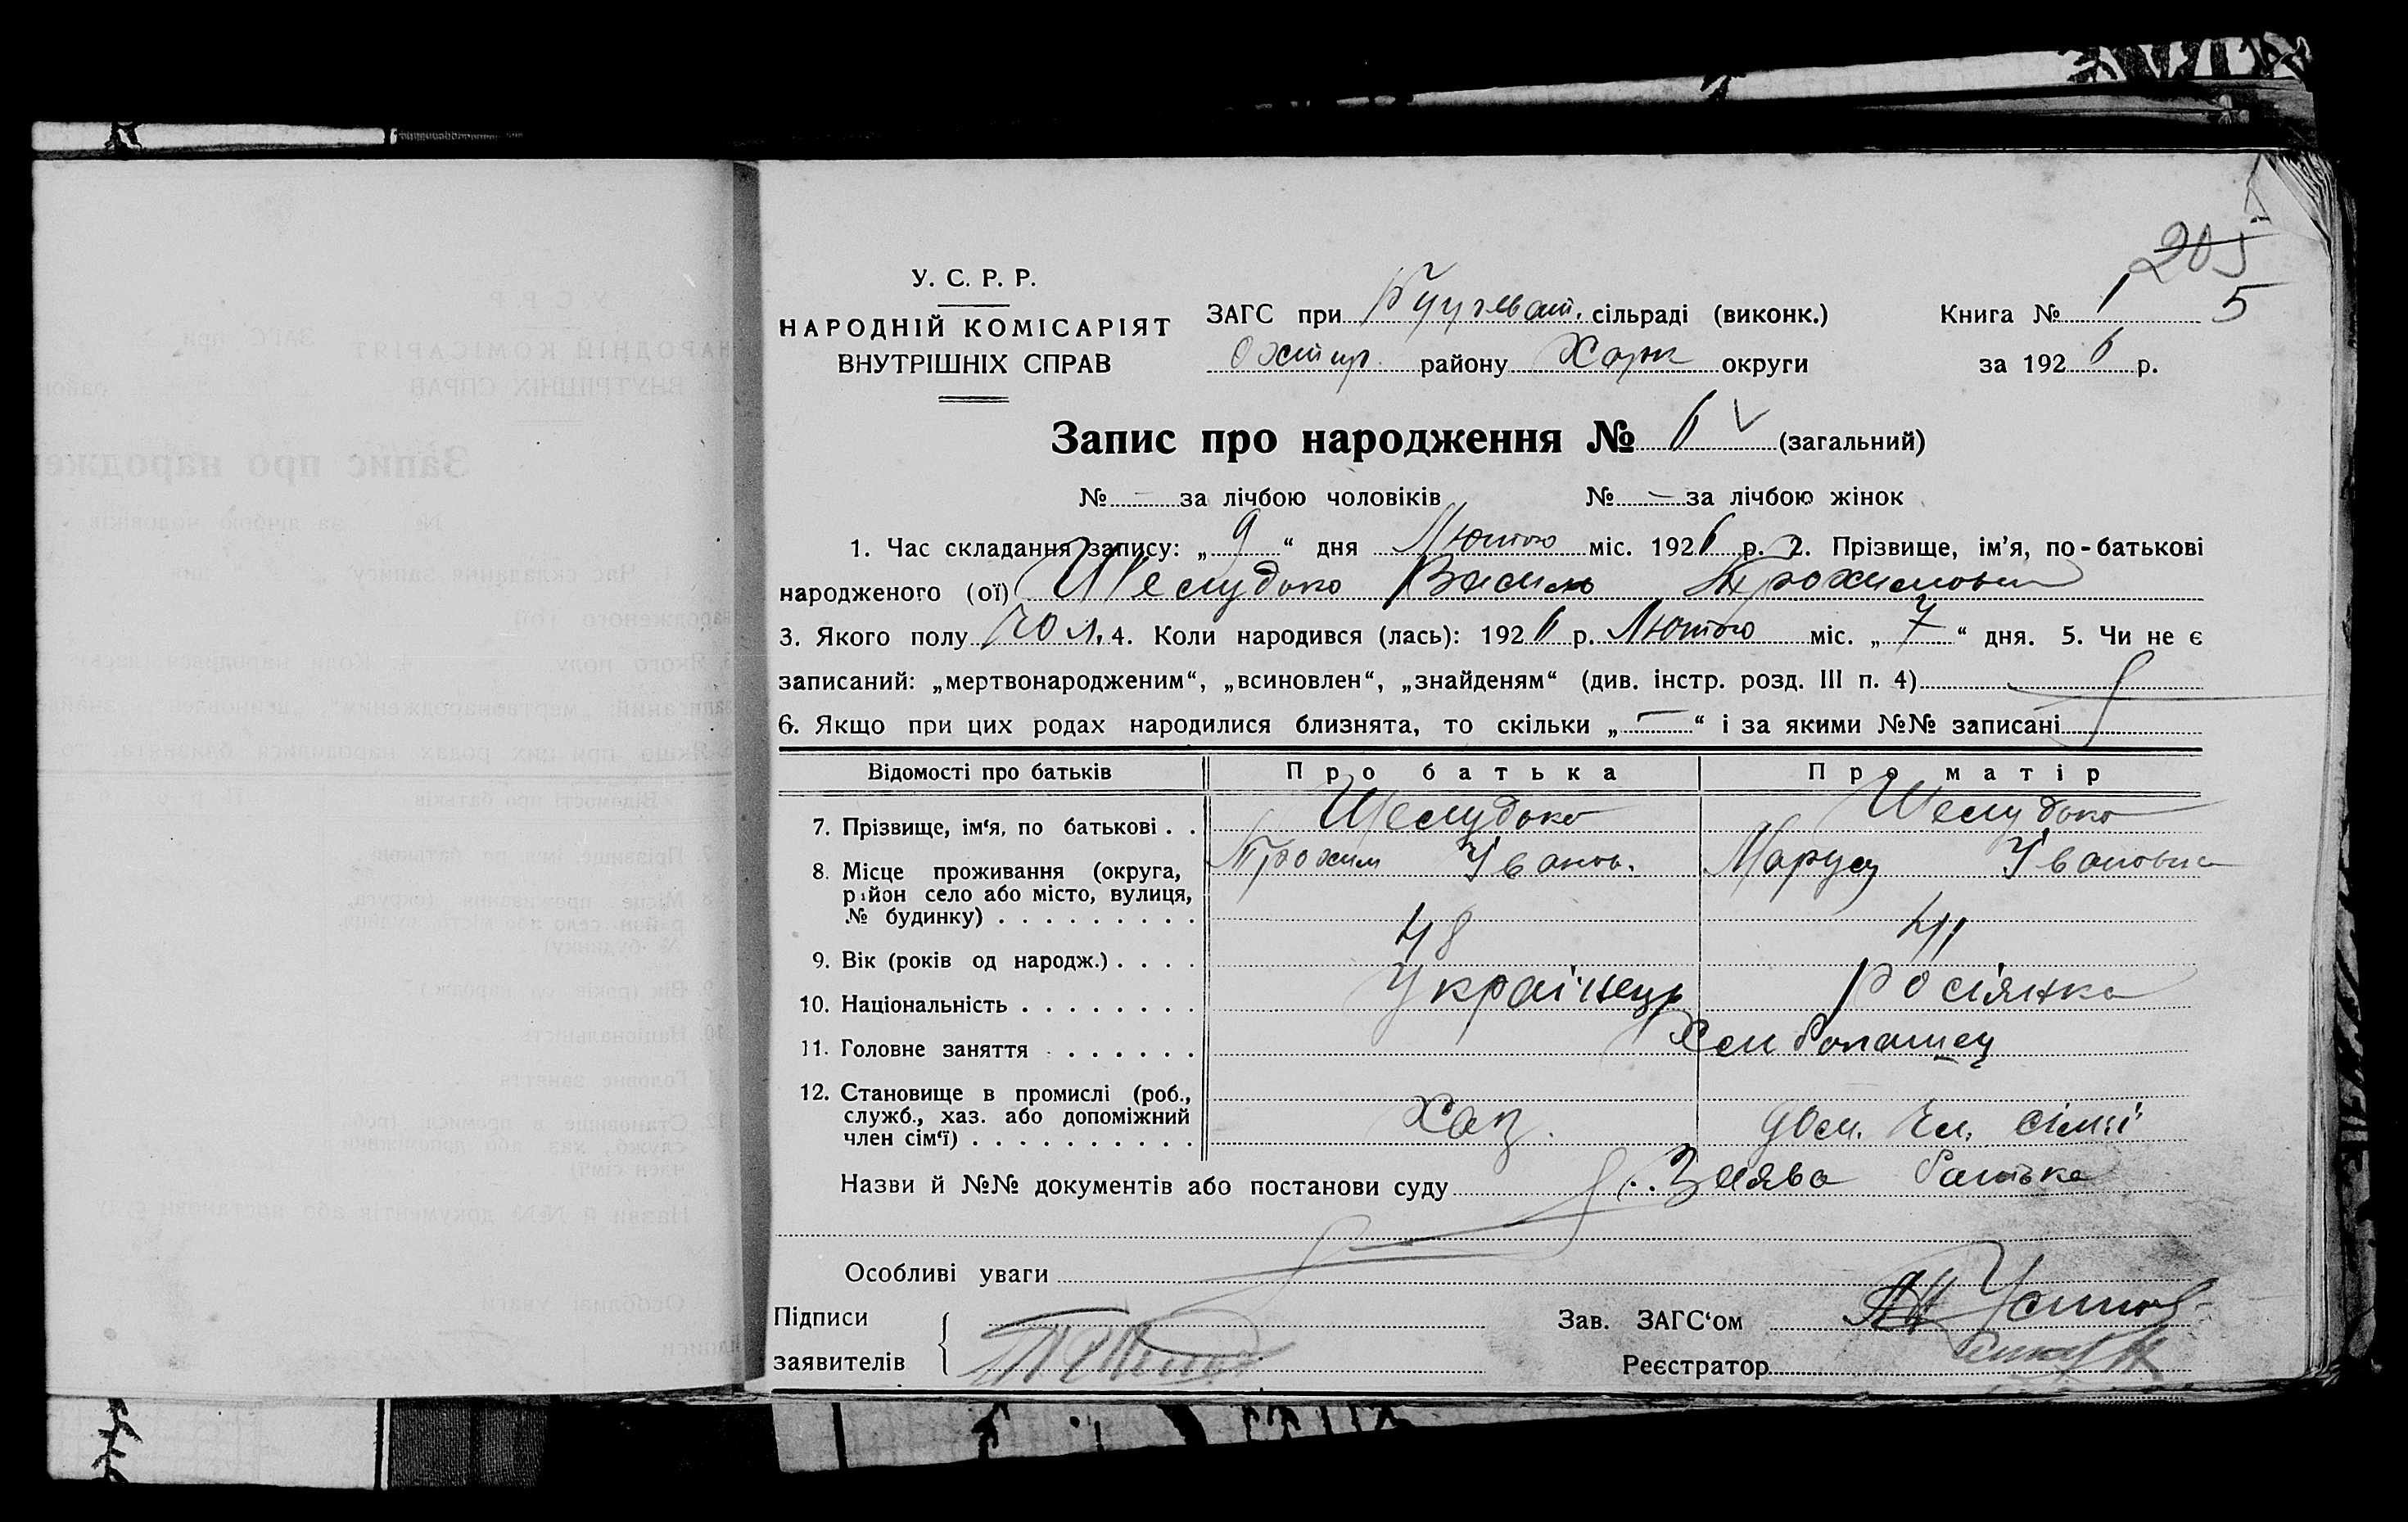 205
У. С. Р. Р.
НАРОДНІЙ КОМІСАРІЯТ
ВНУТРІШНІХ СПРАВ
ЗАГС при сільраді (виконк.)
Охтир. району Харк округи
Книга № 1 5
за 1926 р.
Запис про народження № 6 (загальний)
№ - за лічбою чоловіків № - за лічбою жінок
1. Час складання запису: „ 9 “ дня Лютого міс. 1926 р. 2. Прізвище, ім’я, по-батькові
народженого (ої) Шелудько Василь Трохимович
3. Якого полу чол. 4. Коли народився (лась): 1926 р. Лютого міс. „ 7 “ дня. 5. Чи не є
записаний: „мертвонародженим“, „всиновлен“, „знайденям“ (див. інстр. розд. III п. 4)
6. Якщо при цих родах народилися близнята, то скільки „ - “ і за якими №№ записані
Відомості про батьків Про батька Про матір
7. Прізвище, ім‘я, по батькові . . Шелудько Шелудько
8. Місце проживання (округа, Трохим Іванов. Маруся Івановна
район село або місто, вулиця,
№ будинку) . . . . . . . . .
9. Вік (років од народж.) . . . . 48 41
10. Національність . . . . . . . . Українець росіянка
11. Головне заняття . . . . . . . Хлиборашец
12. Становище в промислі (роб.,
служб., хаз. або допоміжний Хаз. дом. чл. сімї
член сім‘ї) . . . . . . . . . .
Назви й №№ документів або постанови суду Заява батька
Особливі уваги
Підписи
заявителів
Зав. ЗАГС‘ом
Реєстратор